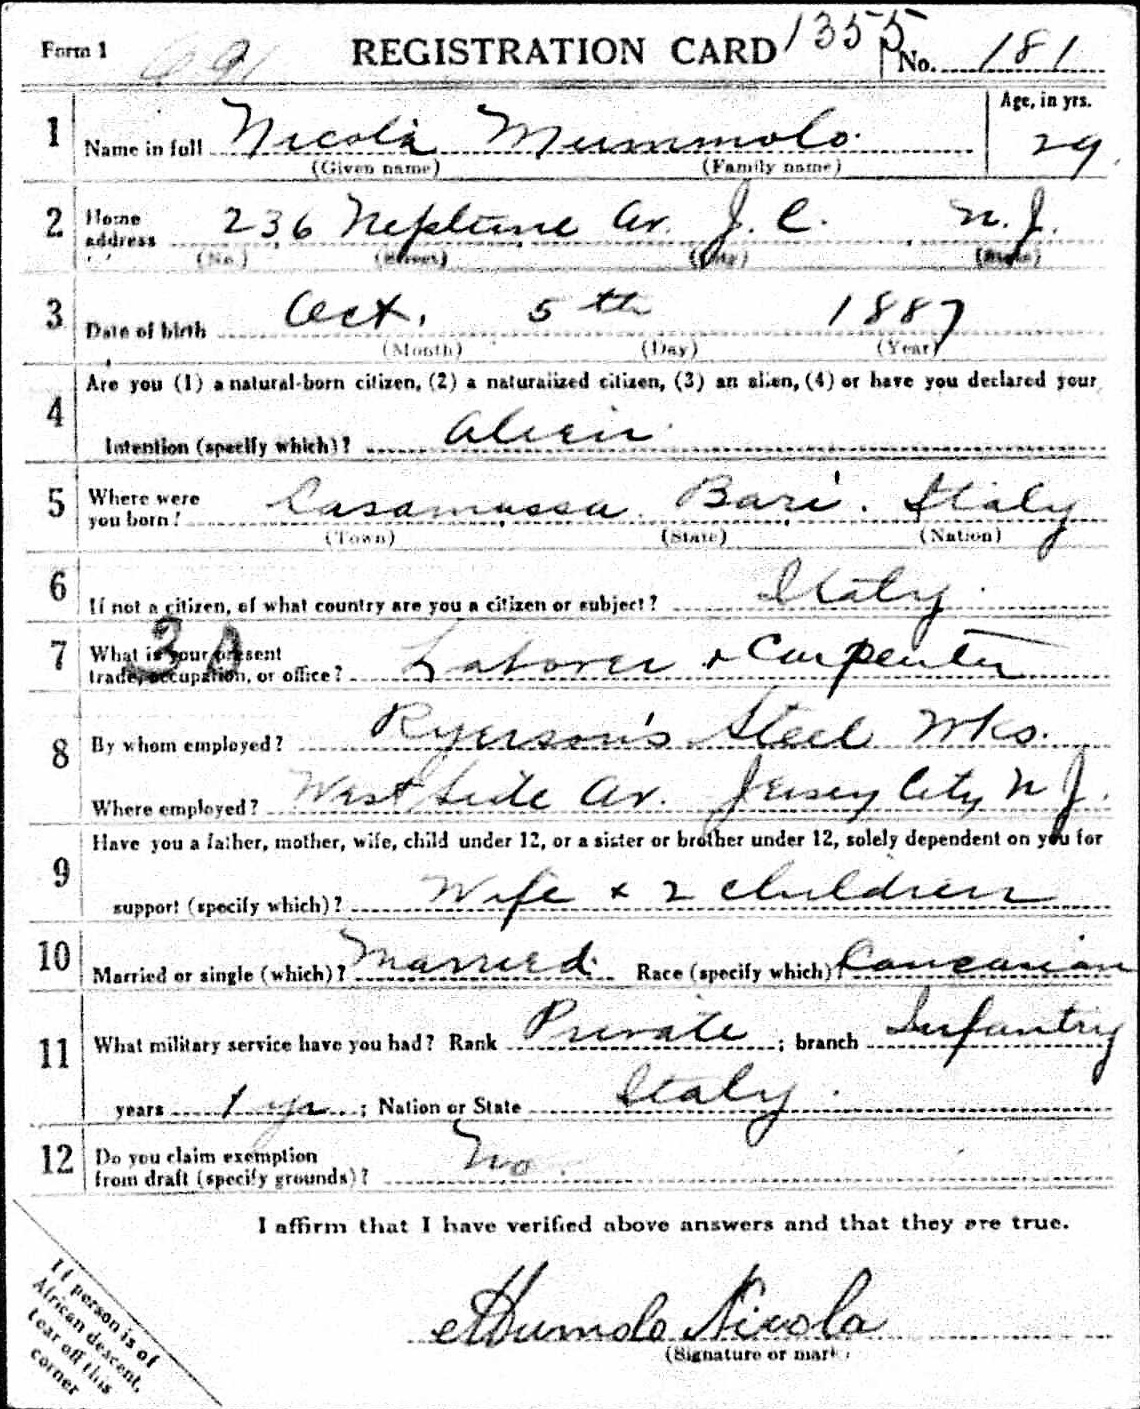 1355
Form 1 REGISTRATION CARD No. 181
1 Name in full Nicola Mummolo. Age, in yrs.
(Given name) (Family name) 29
2 Home address 236 Neptune Av. J. C. N. J.
(No.) (Street) (City) (State)
3 Date of birth Oct. 5th 1887
(Month) (Day) (Year)
4 Are you (1) a natural-born citizen, (2) a naturalized citizen, (3) an alien, (4) or have you declared your
intention (specify which)? Alien
5 Where were you born? Casamassa. Bari. Italy
(Town) (State) (Nation)
6 If not a citizen, of what country are you a citizen or subject? Italy.
7 What is your present
trade, occupation, or office? Laborer + Carpenter
8 By whom employed? Ryerson's Steel Wks.
Where employed? West Side Av. Jersey City N J.
9 Have you a father, mother, wife, child under 12, or a sister or brother under 12, solely dependent on you for
support (specify which)? Wife + 2 children
10 Married or single (which)? Married. Race (specify which)? Caucasian
11 What military service have you had? Rank Private ; branch Infantry
years 1 yr ; Nation or State Italy.
12 Do you claim exemption
from draft (specify grounds)? No.
I affirm that I have verified above answers and that they are true.
Mumolo Nicola
(Signature or mark)
If person is of
African descent,
tear off this
corner